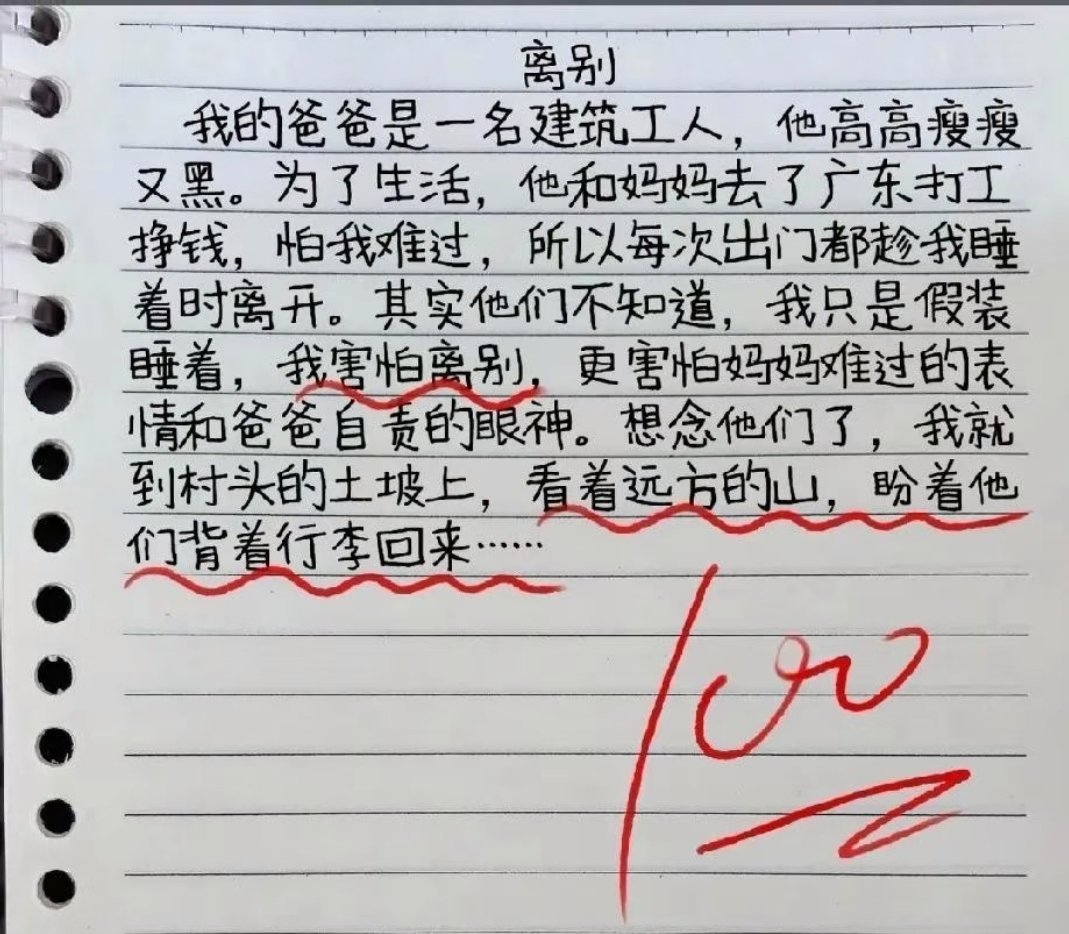 离别
我的爸爸是一名建筑工人，他高高瘦瘦
又黑。为了生活，他和妈妈去了广东打工
挣钱，怕我难过，所以每次出门都趁我睡
着时离开。其实他们不知道，我只是假装
睡着，我害怕离别，更害怕妈妈难过的表
情和爸爸自责的眼神。想念他们了，我就
到村头的土坡上，看着远方的山，盼着他
们背着行李回来……
100